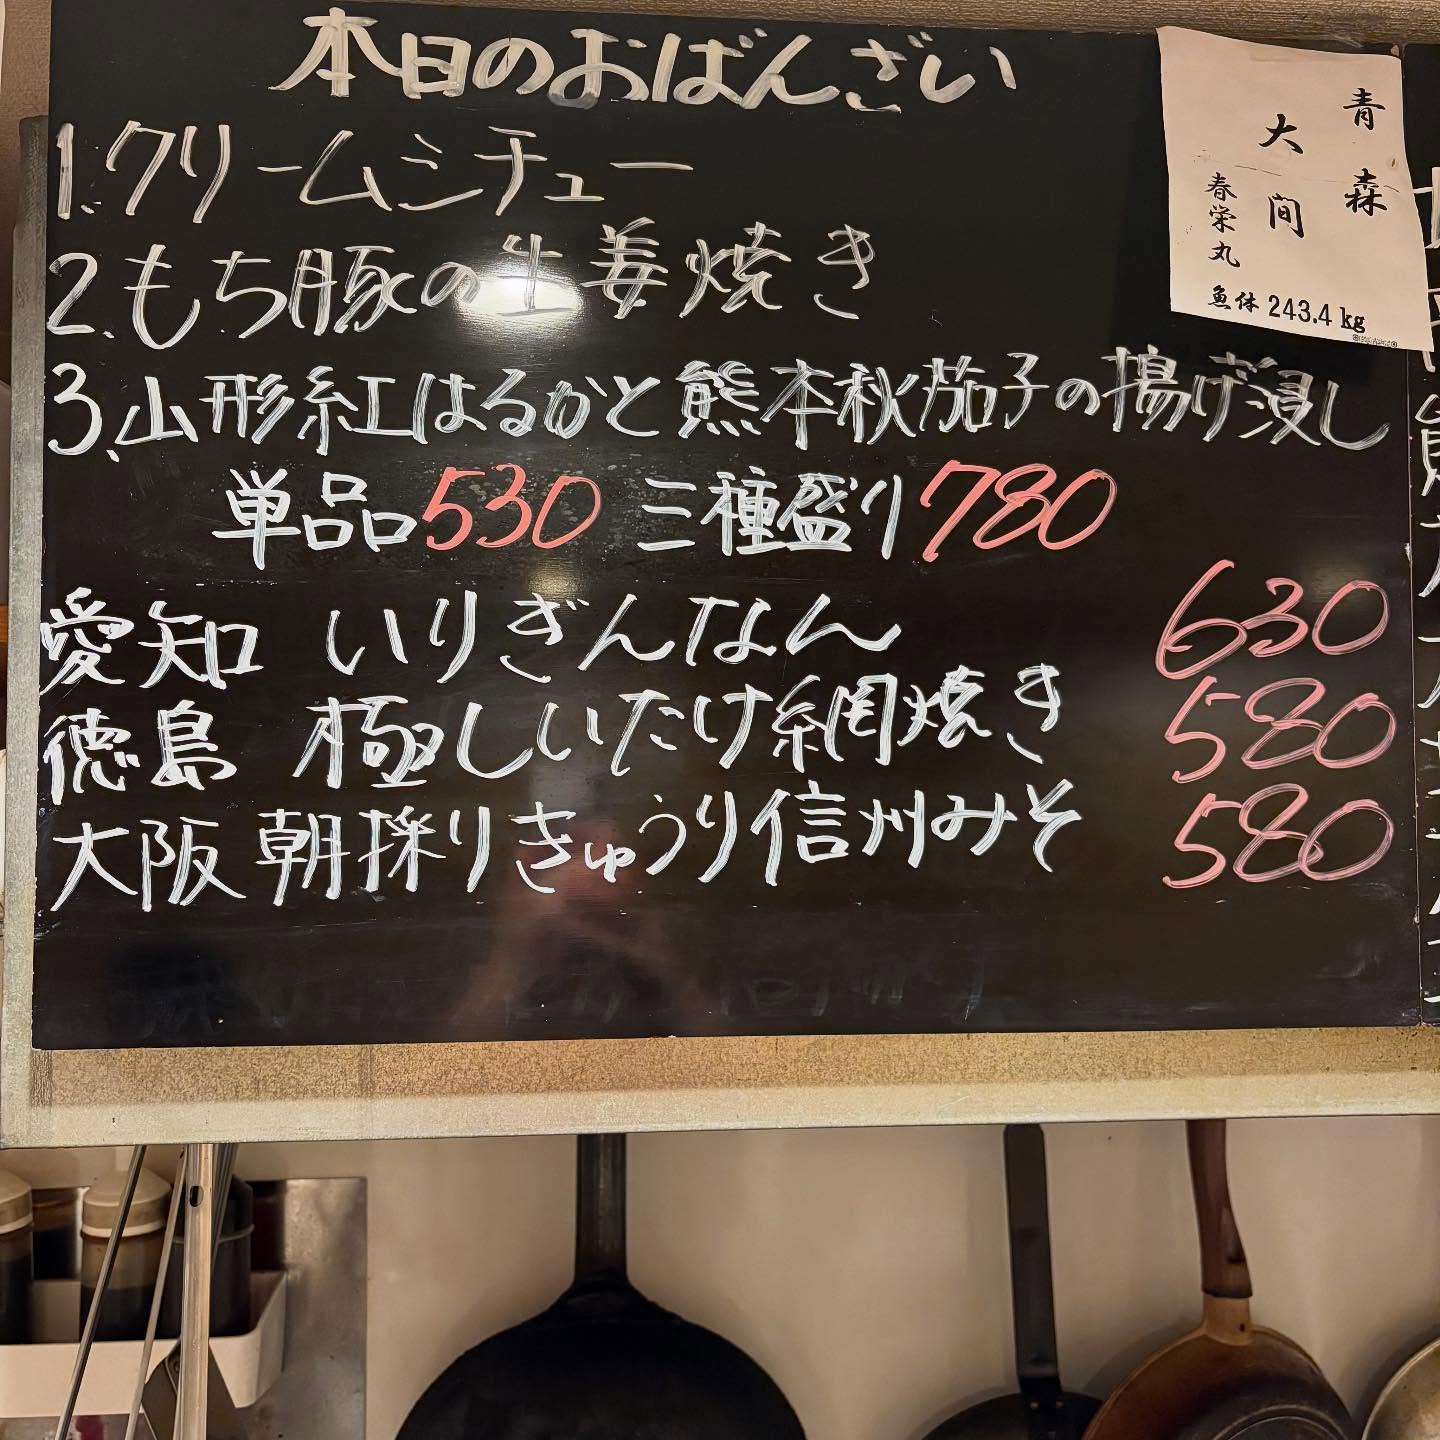 本日のおばんざい
1.クリームシチュー
2.もち豚の生姜焼き
3.山形紅はるかと熊本秋茄子の揚げ浸し
単品530 三種盛り780
愛知 いりぎんなん 630
徳島 極しいたけ網焼き 580
大阪 朝採りきゅうり信州みそ 580
青森
大間
春栄丸
魚体 243.4kg